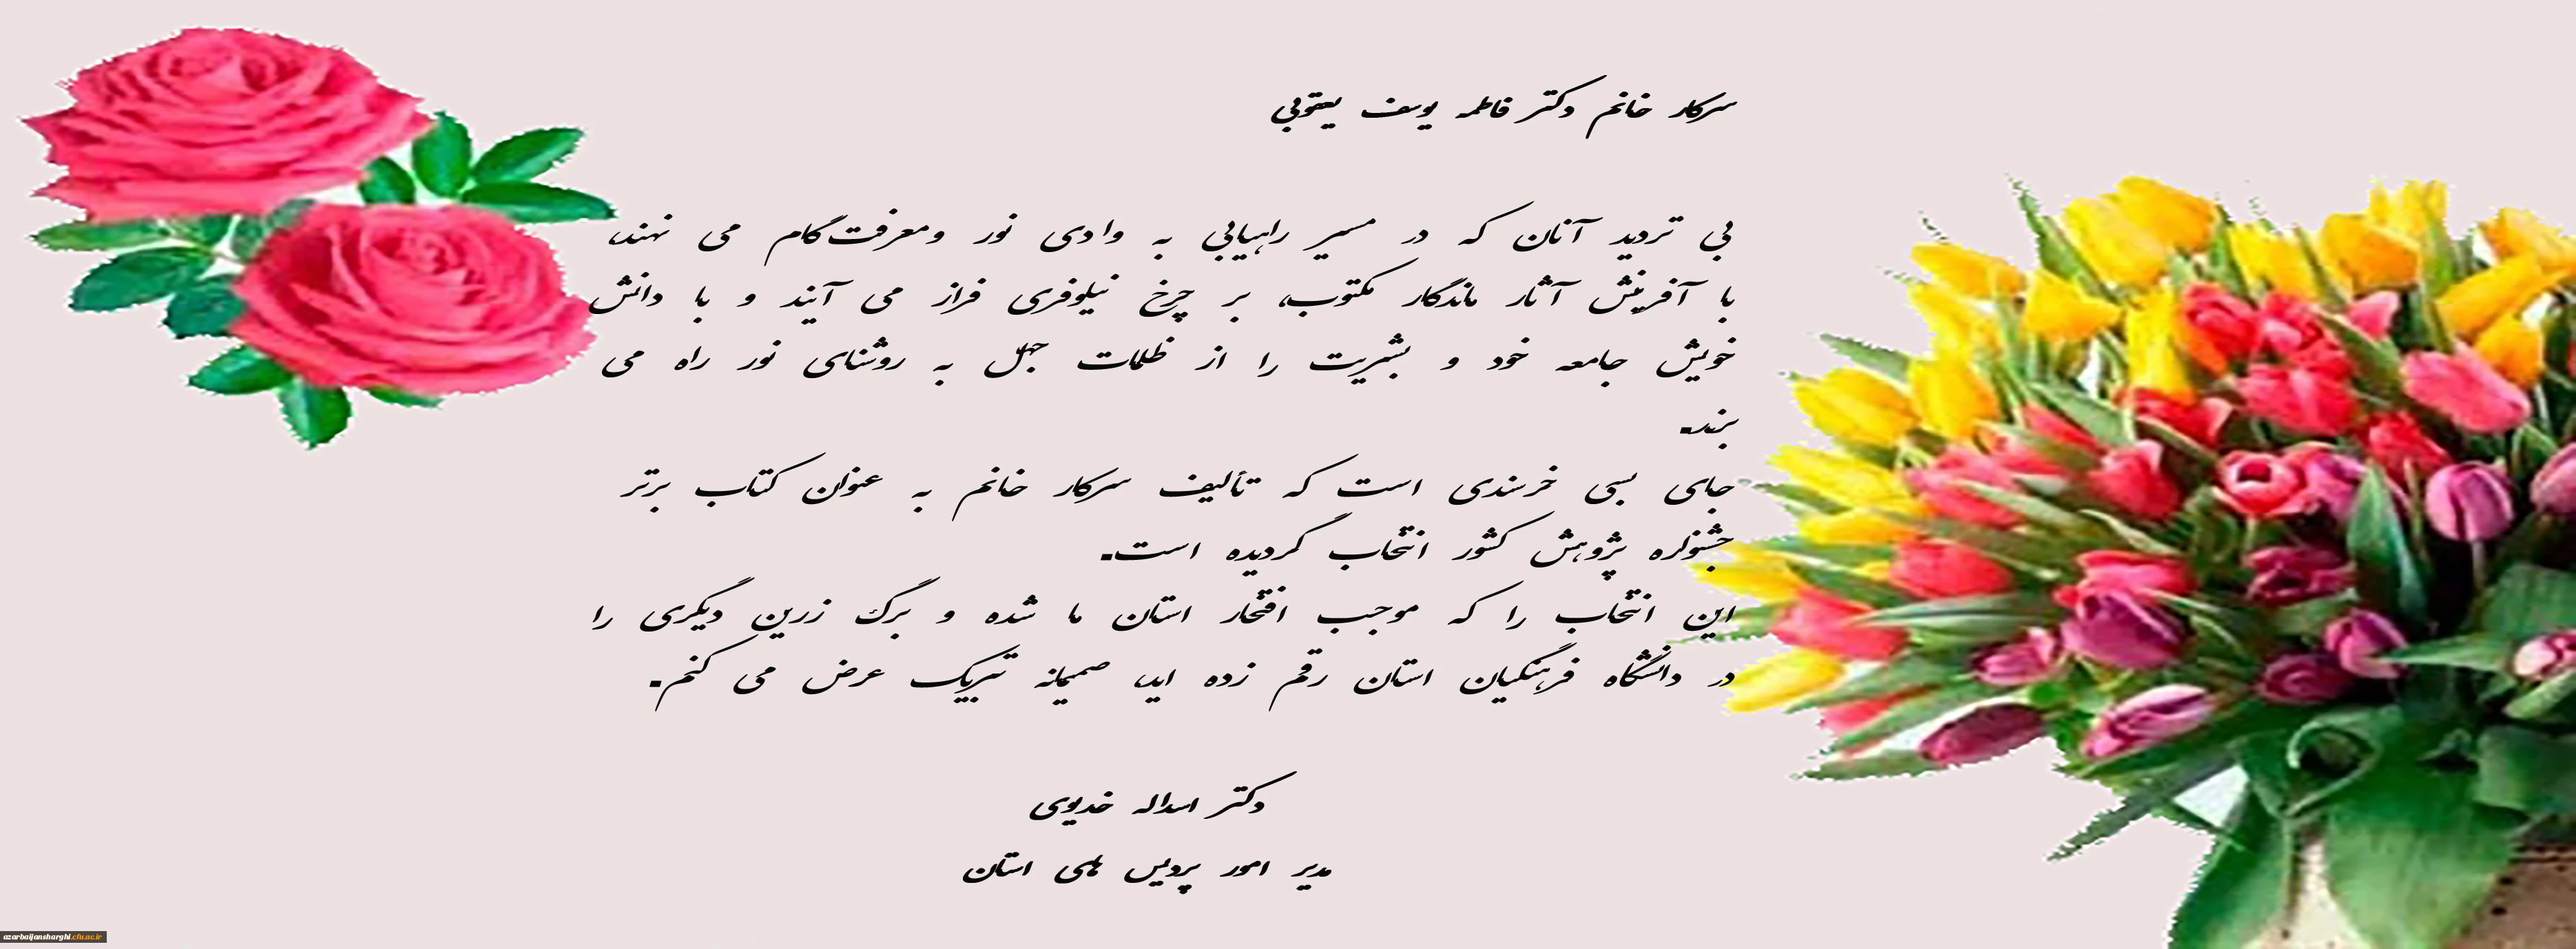 سرکار خانم دکتر فاطمه یوسف یعقوبی
بی تردید آنان که در مسیر راهیابی به وادی نور ومعرفت گام می نهند،
با آفرینش آثار ماندگار مکتوب، بر چرخ نیلوفری فراز می آیند و با دانش
خویش جامعه خود و بشریت را از ظلمات جهل به روشنای نور راه می
برند.
جای بسی خرسندی است که تألیف سرکار خانم به عنوان کتاب برتر
جشنواره پژوهش کشور انتخاب گردیده است.
این انتخاب را که موجب افتخار استان ما شده و برگ زرین دیگری را
در دانشگاه فرهنگیان استان رقم زده اید، صمیمانه تبریک عرض می کنم.
دکتر اسداله خدیوی
مدیر امور پردیس های استان
azarbaijansharghi.cfu.ac.ir